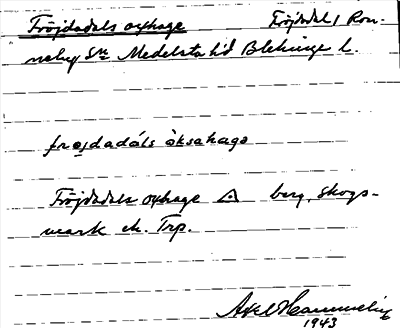 Fröjdadals oxhage Fröjdadal, Ron-
neby Sn Medelsta hd Blekinge l.
frøjdadáls òksahaga
Fröjdadals oxhage △ berg, skogs-
mark ek. Trp.
Axel Hammelin
1943